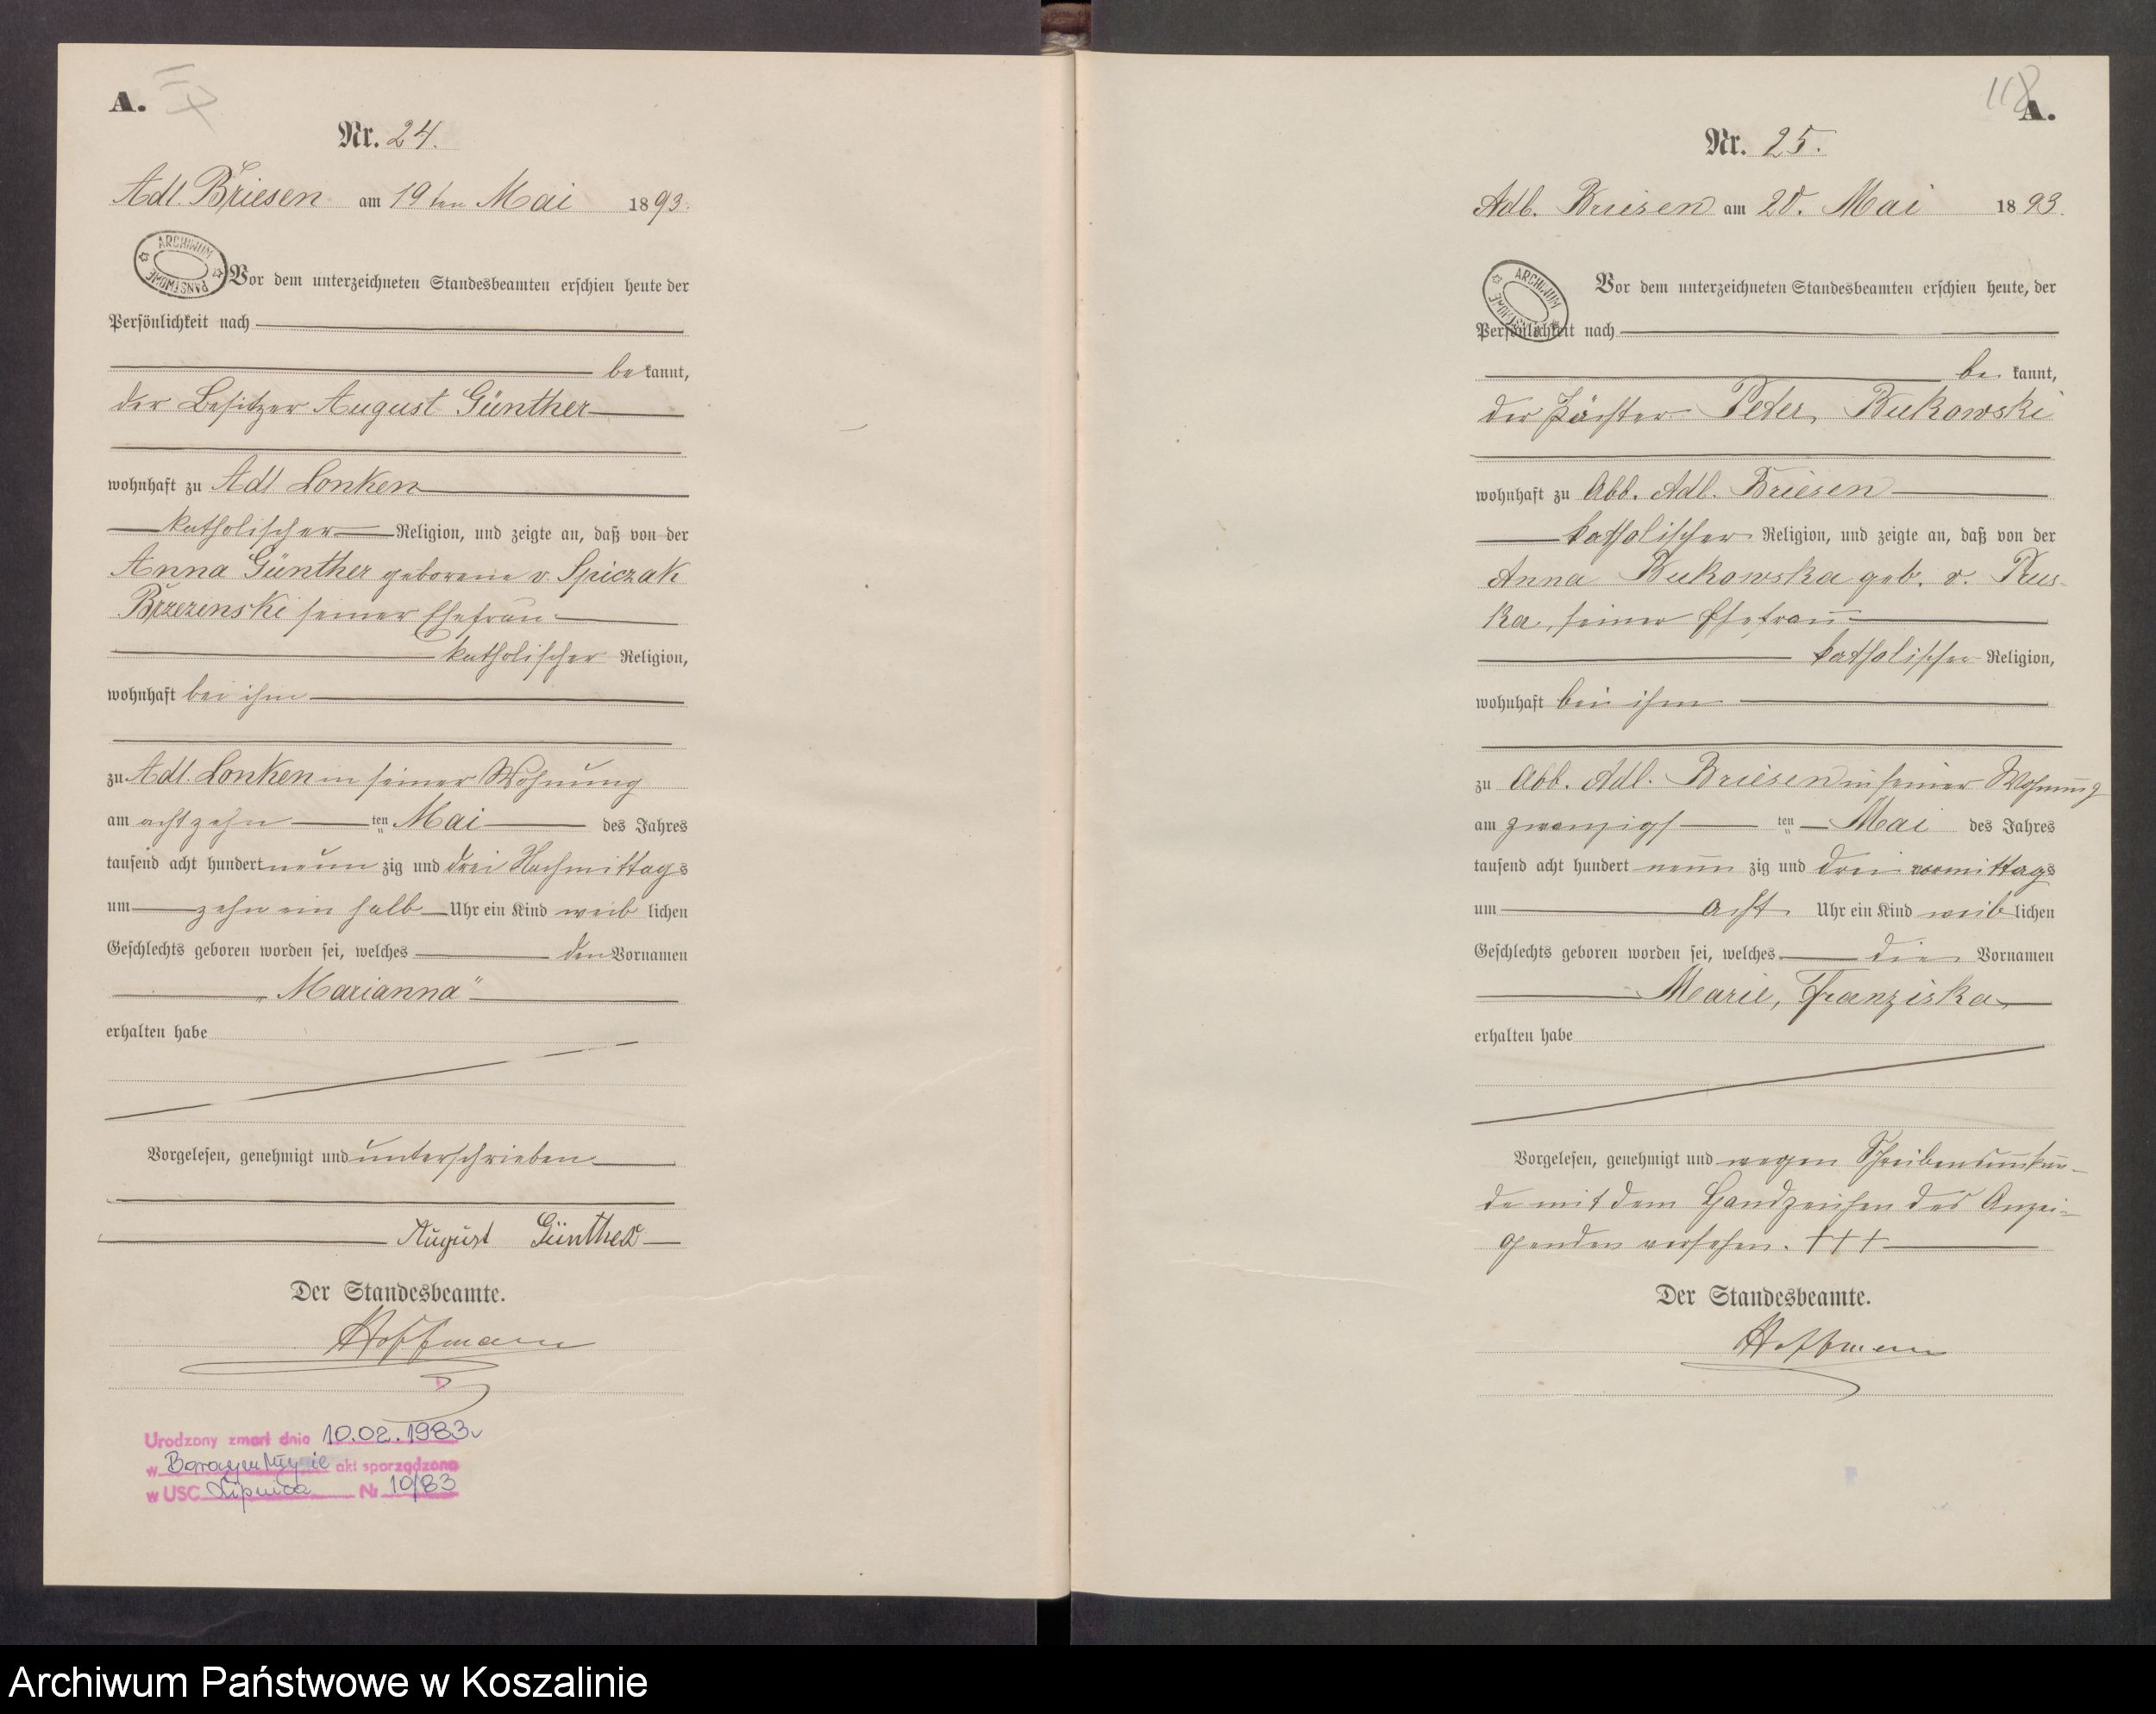 A.
Nr. 24.
Adl. Briesen am 19ten Mai 1893.
ARCHIWUM PAŃSTWOWE
Vor dem unterzeichneten Standesbeamten erschien heute der
Persönlichkeit nach
bekannt,
der Besitzer August Günther
wohnhaft zu Adl Lonken
katholischer Religion, und zeigte an, daß von der
Anna Günther geborene v. Spiczak
Brzezinski seiner Ehefrau
katholischer Religion,
wohnhaft bei ihm
zu Adl. Lonken in seiner Wohnung
am achtzehn ten Mai des Jahres
tausend acht hundert neun zig und drei Nachmittags
um zehn ein halb Uhr ein Kind weib lichen
Geschlechts geboren worden sei, welches den Vornamen
„Marianna"
erhalten habe
Vorgelesen, genehmigt und unterschrieben
August Günther
Der Standesbeamte.
Hoffmann
Urodzony zmarł dnia 10.02.1983
w akt sporządzono
w USC Lipnica Nr 10/83
118
A.
Nr. 25.
Adl. Briesen am 20. Mai 1893.
ARCHIWUM PAŃSTWOWE
Vor dem unterzeichneten Standesbeamten erschien heute, der
Persönlichkeit nach
be kannt,
der Pächter Peter Bukowski
wohnhaft zu Abb. Adl. Briesen
katholischer Religion, und zeigte an, daß von der
Anna Bukowska geb. v. Prus-
ka, seiner Ehefrau
katholischer Religion,
wohnhaft bei ihm
zu Abb. Adl. Briesen in seiner Wohnung
am zwanzigs ten Mai des Jahres
tausend acht hundert neun zig und drei vormittags
um acht Uhr ein Kind weib lichen
Geschlechts geboren worden sei, welches die Vornamen
Marie, Franziska
erhalten habe
Vorgelesen, genehmigt und wegen Schreibensunkun-
de mit dem Handzeichen des Anzei-
genden versehen. +++
Der Standesbeamte.
Hoffmann
Archiwum Państwowe w Koszalinie